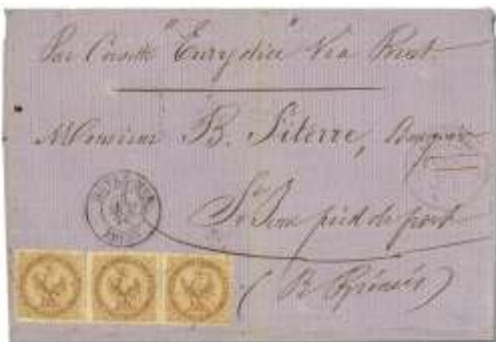 Par Corvette "Eurydice" Via Brest
Monsieur B. Siterre, Banquier
St Jean pied de port
(Bs Pyrénées)